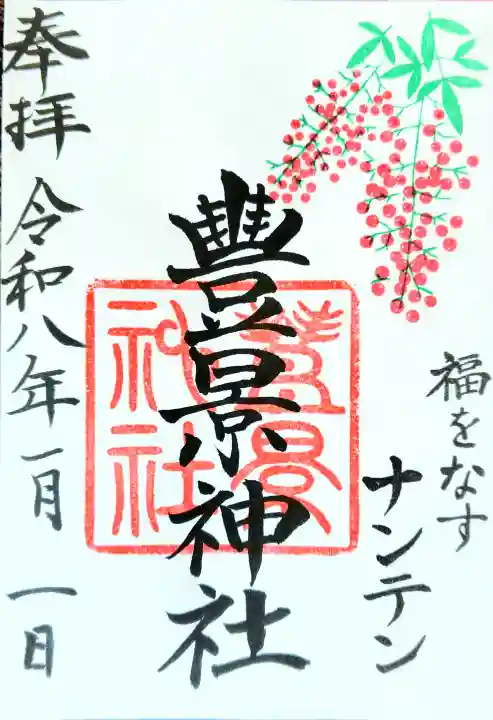 福をなす
ナンテン
豐景神社
豊景
神社
奉拝 令和八年一月 一日